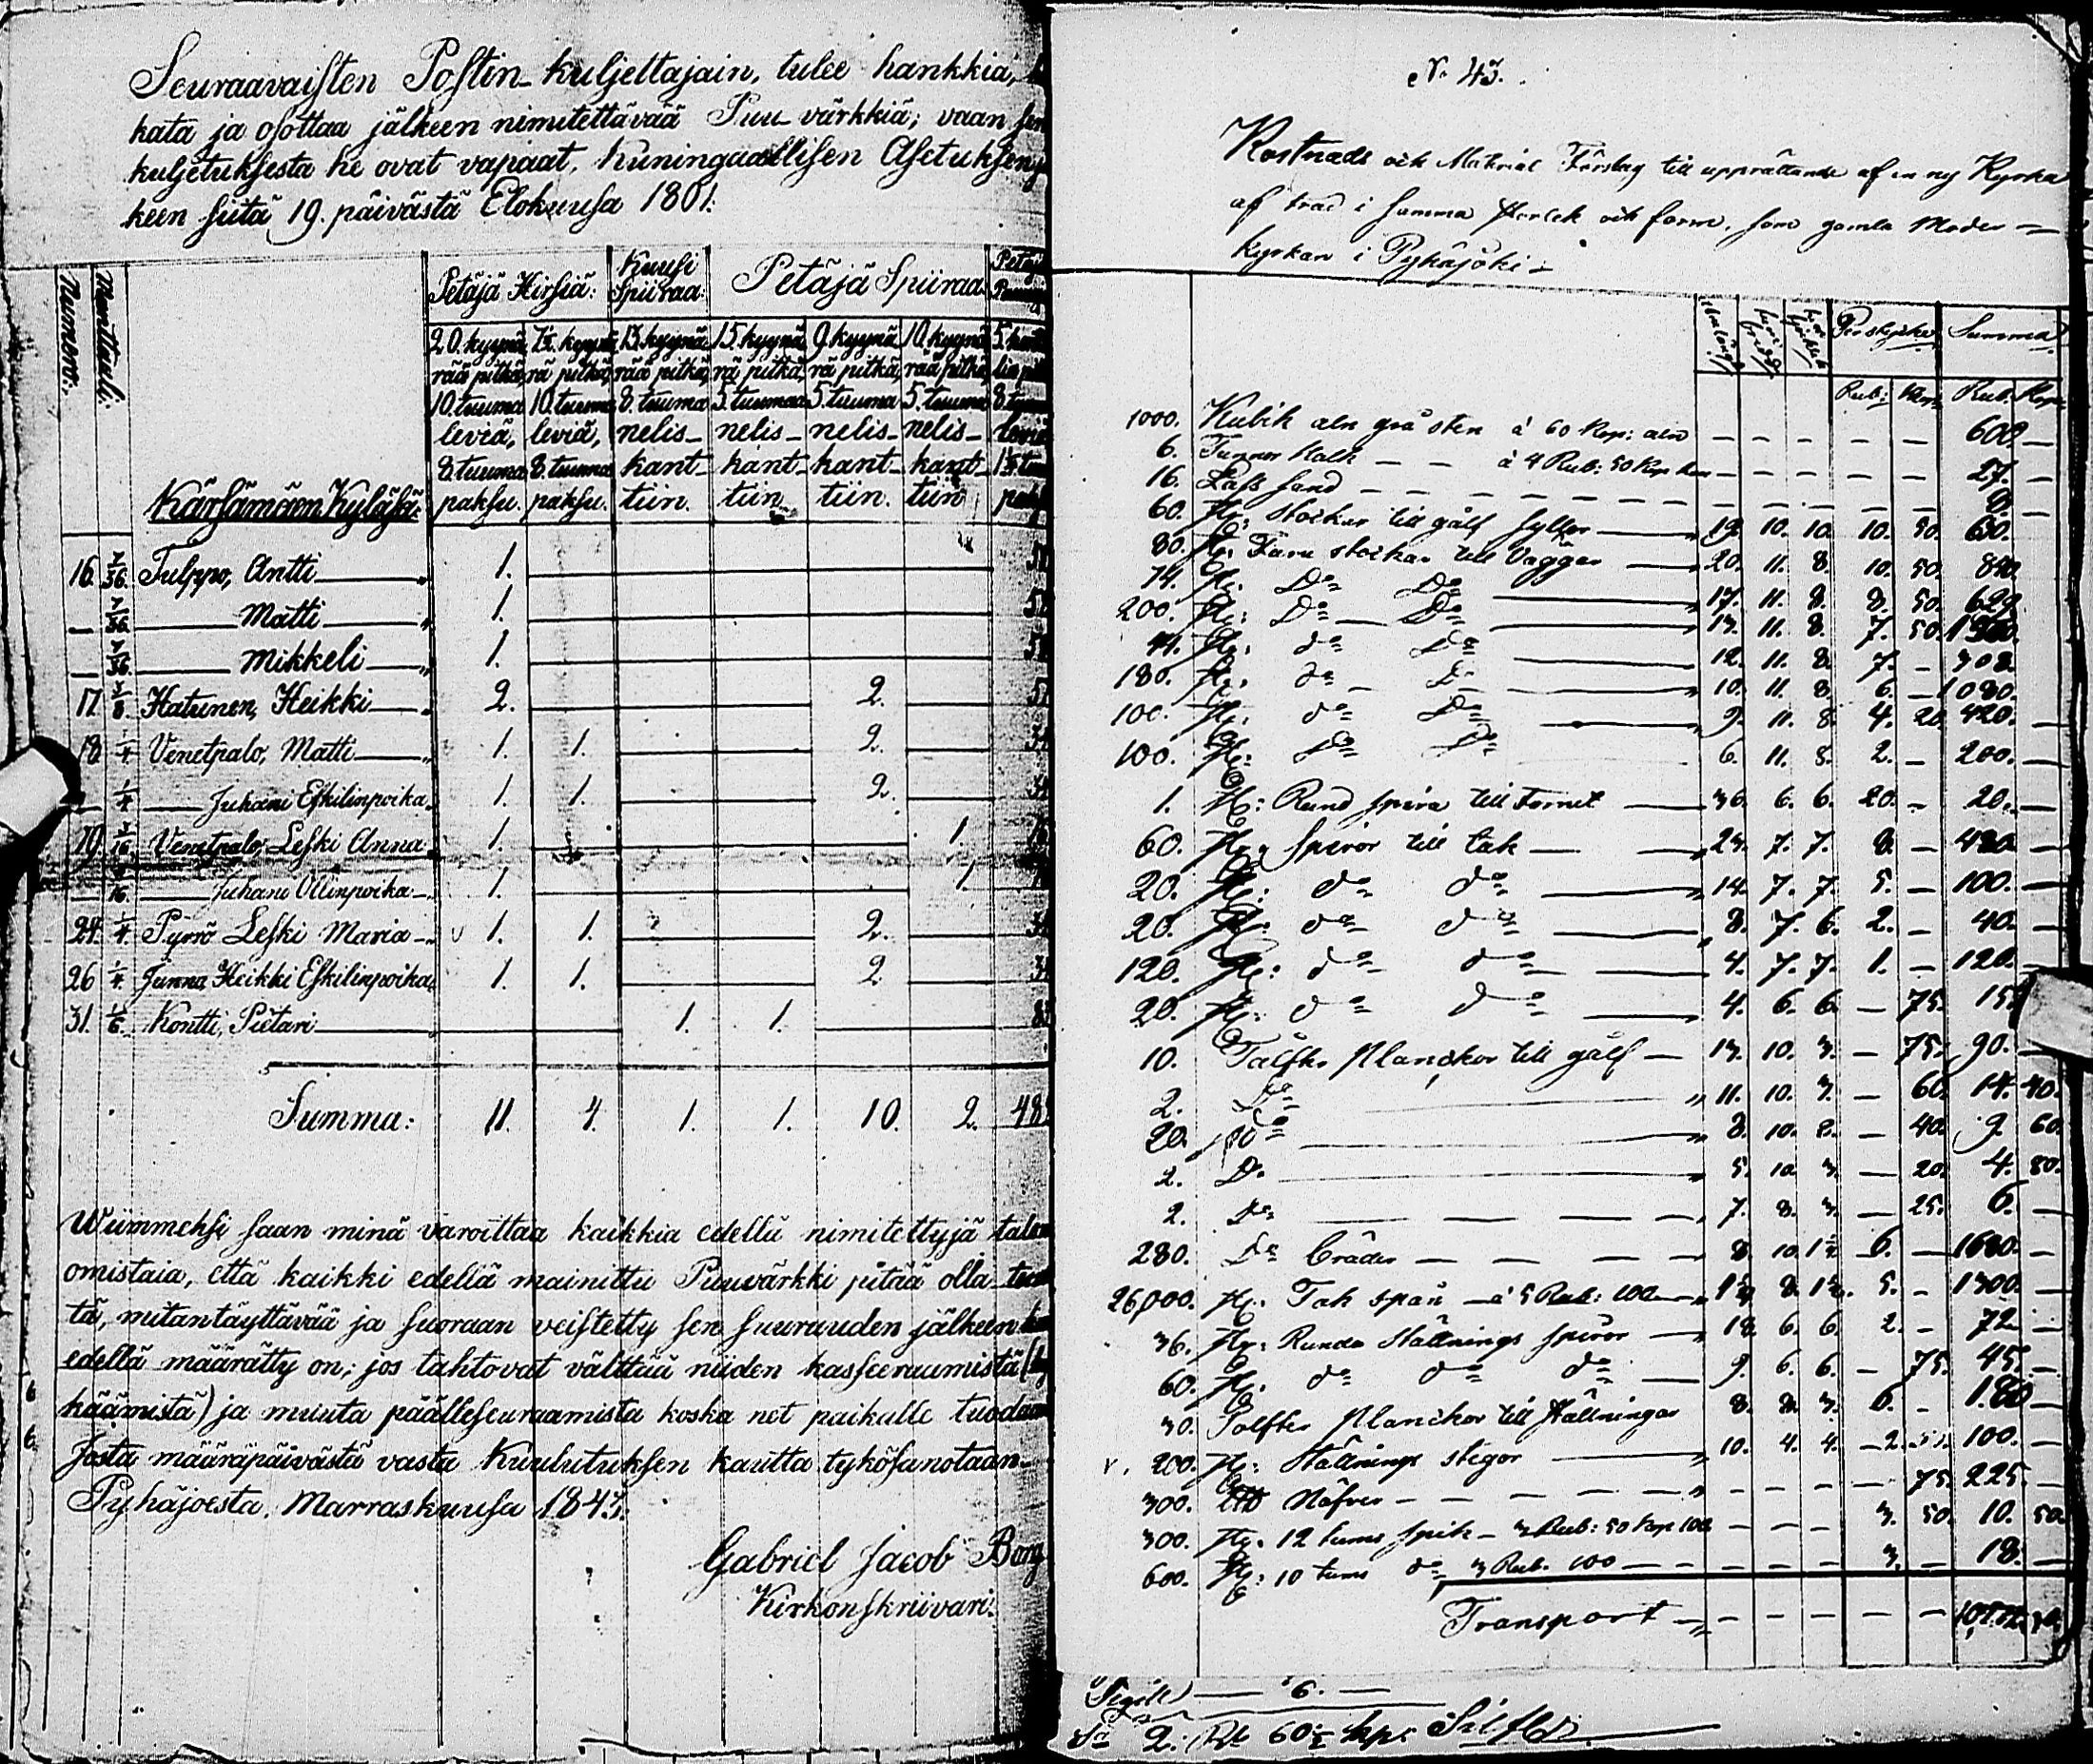 Seuraavaisten Postin-kuljettajain, tulee hankkia,
kata ja osottaa jälkeen nimitettävää Puu-värkkiä; vaan sen
kuljetuksesta he ovat vapaat, Kuningaallisen Asetuksen
keen siitä 19. päivästä Elokuusa 1801.
Nummero. Manttaali. Petäjä Hirsiä: Kuusi Spiiraa: Petäjä Spiiraa
20. kyynä 7½. kyynä 13. kyynä 15. kyynä 9. kyynä 10. kyynä
rää pitkä, rä pitkä, rää pitkä, rä pitkä, rä pitkä, rää pitkä,
10. tuuma 10. tuuma 8. tuuma 5. tuumaa 5. tuuma 5. tuuma 8. tuuma
leviä, leviä, nelis- nelis- nelis- nelis- leviä
8. tuuma 8. tuuma kant- kant- kant- kant-
Kärsämäen Kyläsä. paksu. paksu. tiin. tiin. tiin. tiin
16. 7/36. Tulppo, Antti 1.
— 7/36. — Matti 1.
— 7/36. — Mikkeli 1.
17. Hatunen, Heikki 2. 2.
18. 1/4 Venetpalo, Matti 1. 1. 2.
— 1/4 — Juhani Eskilinpoika 1. 1. 2.
19. Venetpalo Leski Anna 1. 1.
— Juhani Ollinpoika 1. 1.
24. 1/4 Pyrrö Leski Maria 1. 1. 2.
26 1/4. Junna Heikki Eskilinpoika 1. 1. 2.
31. 1/6. Kontti, Pietari 1. 1.
Summa: 11. 4. 1. 1. 10. 2. 48
Wiimmeksi saan minä varoittaa kaikkia edellä nimitettyjä talon
omistaia, että kaikki edellä mainittu Puuvärkki pitää olla
tä, mitantäyttävää ja suoraan veistetty sen suuruuden jälkeen
edellä määrätty on; jos tahtovat välttää niiden kasseeraumista
käämistä) ja muuta päälleseuraamista koska net paikalle tuodaan
Josta määräpäivästä vasta Kuulutuksen kautta tykösanotaan.
Pyhäjoesta, Marraskuusa 1843.
Gabriel Jacob Borg
Kirkonskriivari.
No 43.
Kostnads och Material Förslag till upprättande af en ny Kyrka
af träd i samma storlek och form, som gamla Moder-
kyrkan i Pyhäjoki.
Per stycke Summa
Rub: Kop: Rub. Kop:
1000. Kubik aln grå sten á 60 Kop: aln 600
6. Tunnor Kalk á 4 Rub: 50 Kop 27.
16. Lass sand 8.
60. St: stockar till gålf syllor 19. 10. 10. 10. 50. 630.
80. St. Furu stockar till Väggar 20. 11. 8. 10. 50. 840.
74. St: Do Do 17. 11. 8. 8. 50. 629
200. St: Do Do 13. 11. 8. 7. 50. 1500.
44. St. do Do 12. 11. 8. 7. — 308.
180. St. do Do 10. 11. 8. 6. — 1080.
100. St. do Do 9. 11. 8. 4. 20. 420.
100. St: Do Do 6. 11. 8. 2. — 200.
1. St: Rund spira till tornet 36. 6. 6. 20. — 20.
60. St. Spiror till tak 23. 7. 7. 8. — 480
20. St: do do 14. 7. 7. 5. — 100.
20. St: do do 8. 7. 6. 2. — 40.
120. St: do do 4. 7. 7. 1. — 120.
20. St. do do 4. 6. 6. — 75. 15.
10. Tålfter Planckor till gålf 13. 10. 3. — 75. 90.
2. Do 11. 10. 3. — 60. 14. 40.
20. Do 8. 10. 2. — 40. 9. 60.
2. Do 5. 10. 3. — 20. 4. 80.
2. Do 7. 8. 3. — 25. 6.
280. Do bräder 8. 10. 1½ 6. — 1680.
26,000. St. Tak spån á 5 Rub: 100 5. — 1300.
36. St: Runda Ställnings spiror 18. 6. 6. 2. — 72
60. St. do do do 9. 6. 6. — 75. 45.
30. Tolfter Planckor till Ställningar 8. 8. 3. 6. — 180
200. St: Ställnings stegor 10. 4. 4. 100.
300. Näfver 75. 225.
300. St. 12 tums spik 3 Rub: 50 kop 100 3. 50. 10. 50
600. St: 10 tums do 3 Rub. 100 3. — 18.
Transport
Sigill 6.
Sa 2. Rb 60 kpr Silfver